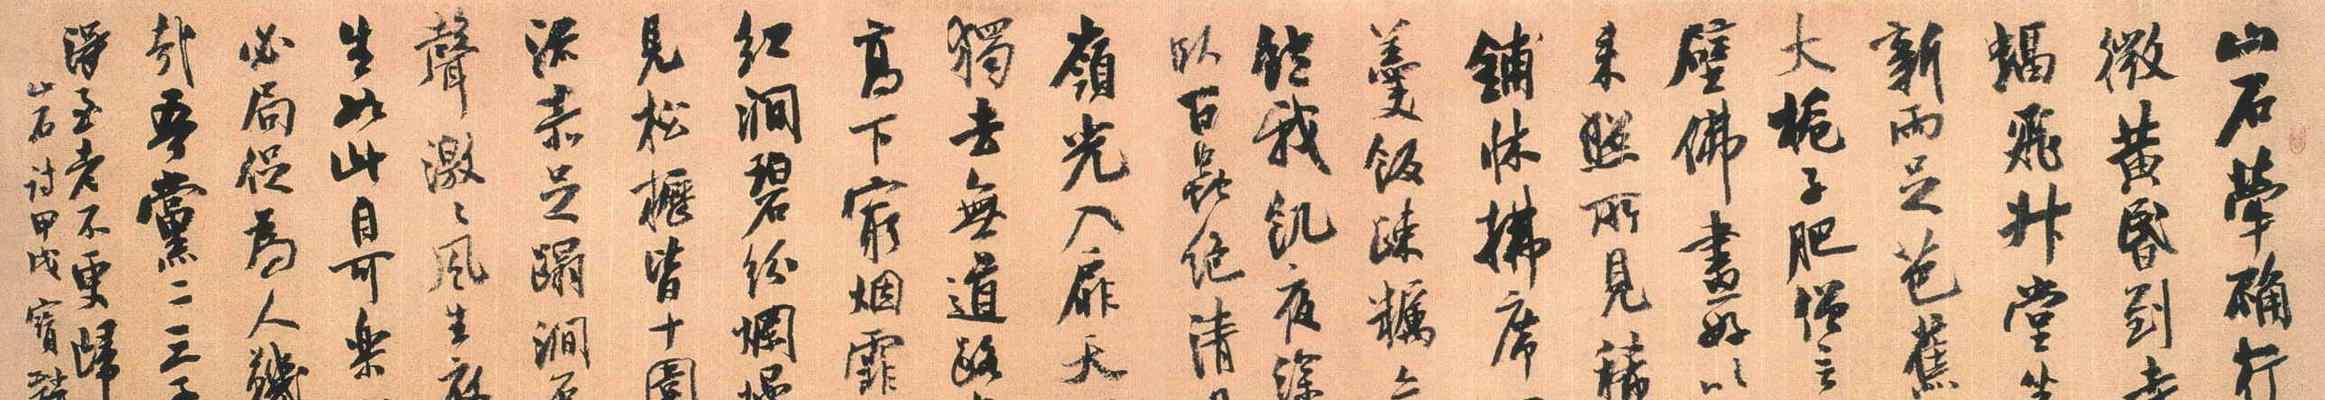 山石犖确行
微黄昏到寺
蝠飛升堂坐
新雨足芭蕉
大梔子肥僧言
壁佛畫好以
来照所見稀
鋪牀拂席
羹飯疎糲亦
飽我飢夜深
臥百蟲绝清月
嶺光入扉天
獨去無道路
髙下窮烟霏
紅澗碧紛爛熳
見松櫪皆十圍
流赤足蹋澗石
聲激〻風生衣
生如此自可樂
必局促為人鞿
哉吾黨二三子
得至老不更歸
山石詩甲戌寶